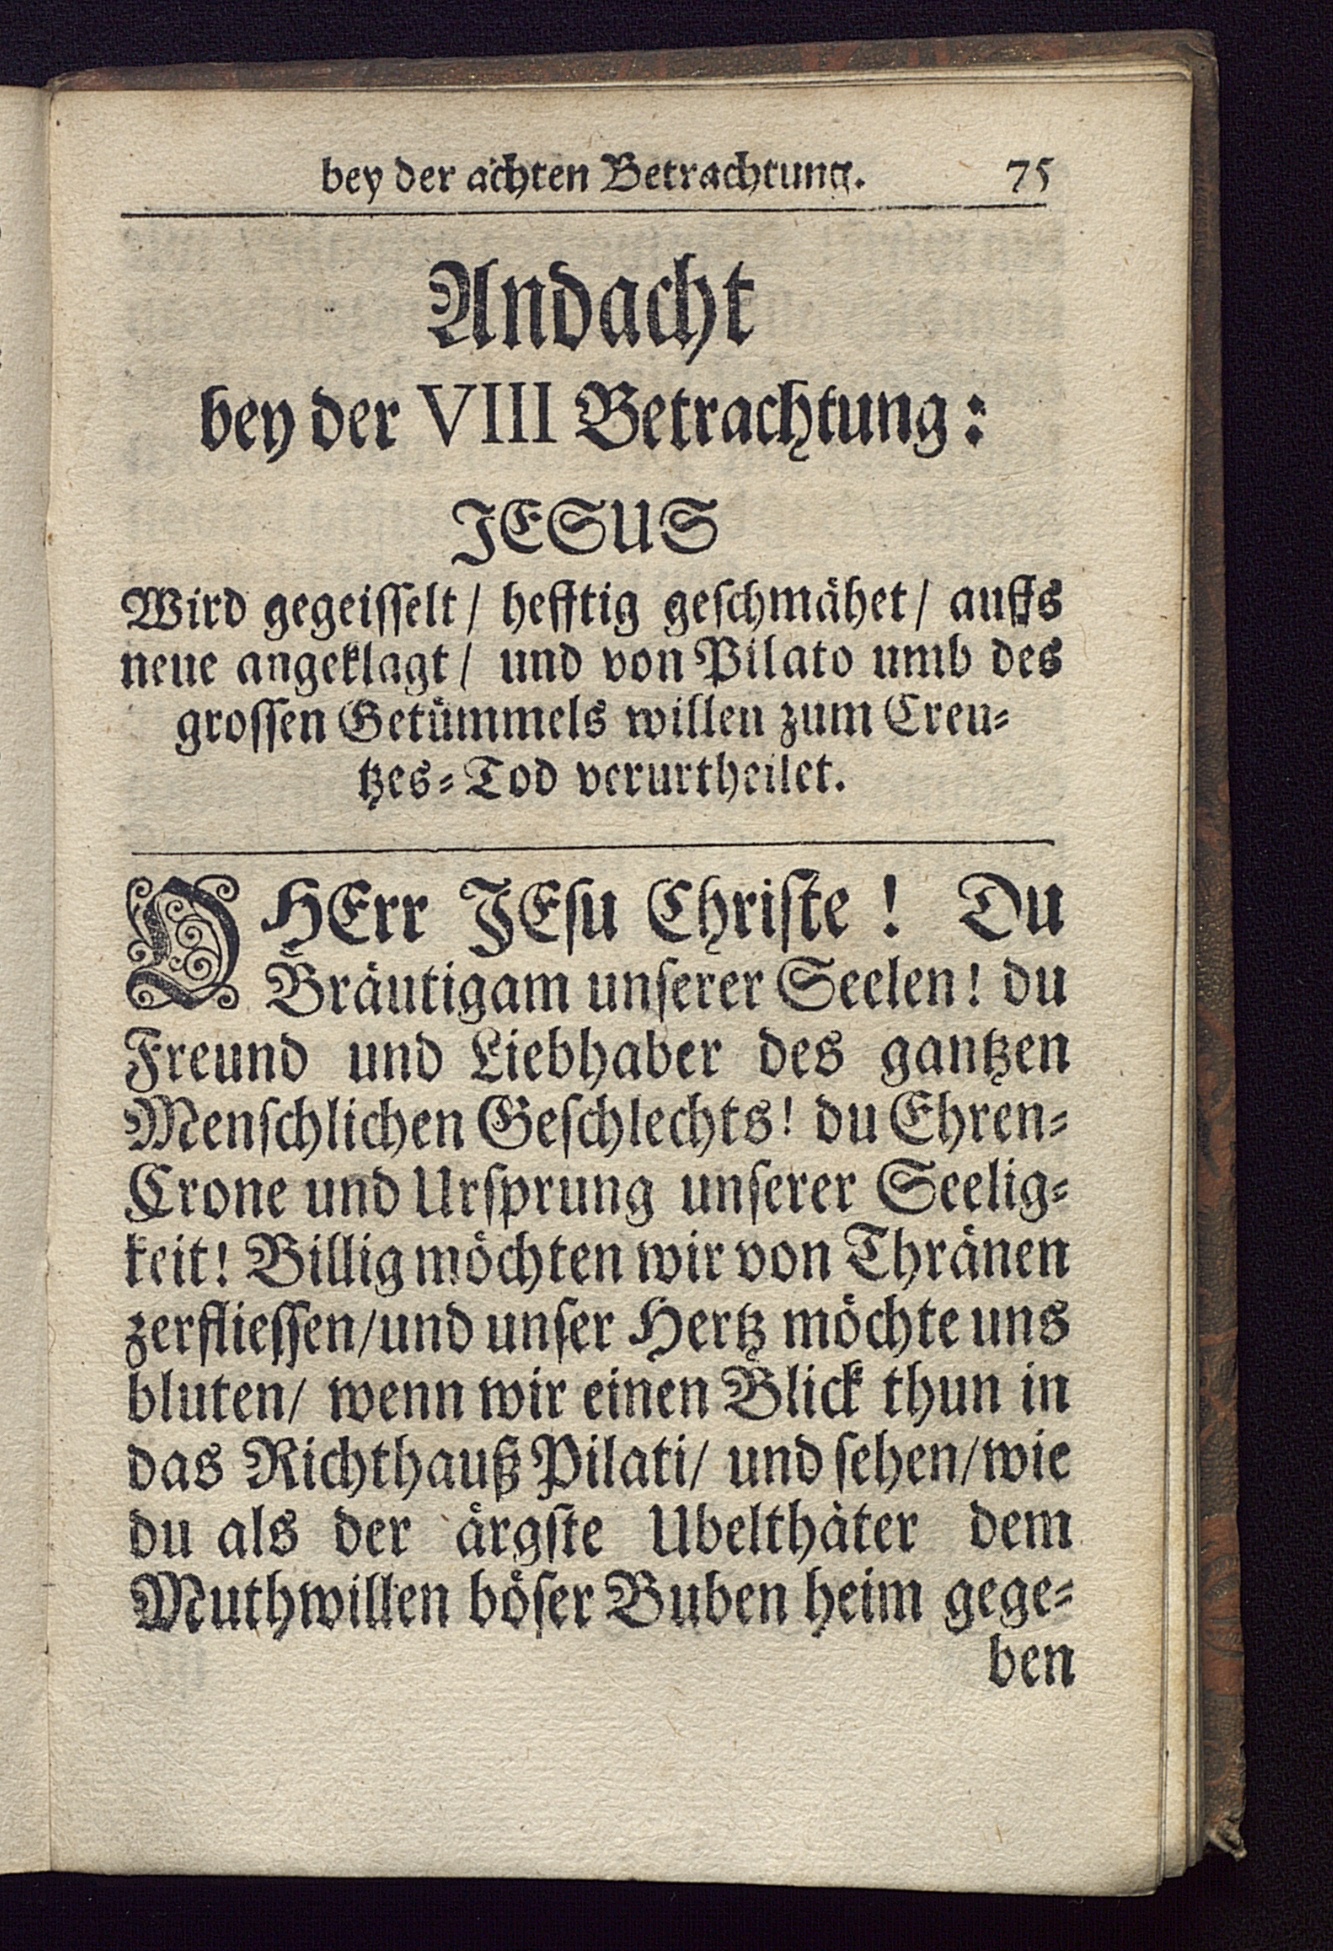 bey der achten Betrachtung. 75
Andacht
bey der VIII Betrachtung:
JESUS
Wird gegeiſſelt/ hefftig geſchmähet/ auffs
neue angeklagt/ und von Pilato umb des
groſſen Getümmels willen zum Creu-
tzes-Tod verurtheilet.
O HErr JEſu Chriſte! Du
Bräutigam unſerer Seelen! du
Freund und Liebhaber des gantzen
Menſchlichen Geſchlechts! du Ehren-
Crone und Urſprung unſerer Seelig-
keit! Billig möchten wir von Thränen
zerflieſſen/und unſer Hertz möchte uns
bluten/ wenn wir einen Blick thun in
das Richthauß Pilati/ und ſehen/wie
du als der ärgſte Ubelthäter dem
Muthwillen böſer Buben heim gege-
ben